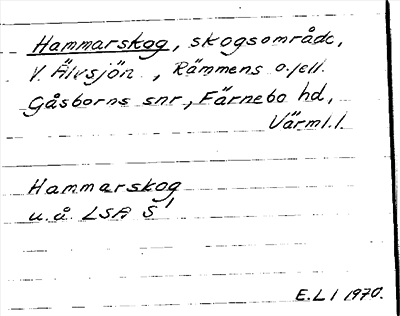 Hammarskog, skogsområde,
V. Älvsjön, Rämmens o. jell.
Gåsborns snr, Färnebo hd,
Värml. l.
Hammarskog
u.å. LSA S
E.L 1970.